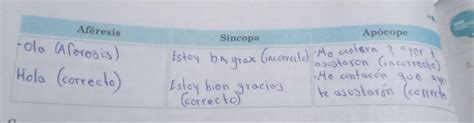 Aféresis
Síncopa
Apócope
-Ola (Aferesis)
Hola (correcto)
Estoy bn, grax (incorrecto)
Estoy bien gracias
(correcto)
-Me contarn q ayer t
asustaron (incorrecto)
-Me contarón que ayer
te asustarón (correcto